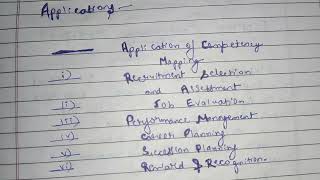 Applications
Application of Competency
Mapping
i) Recruitment Selection
and Assessment
ii) Job Evaluation
iii) Performance Management
iv) Career Planning
v) Succession Planning
vi) Reward & Recognition.